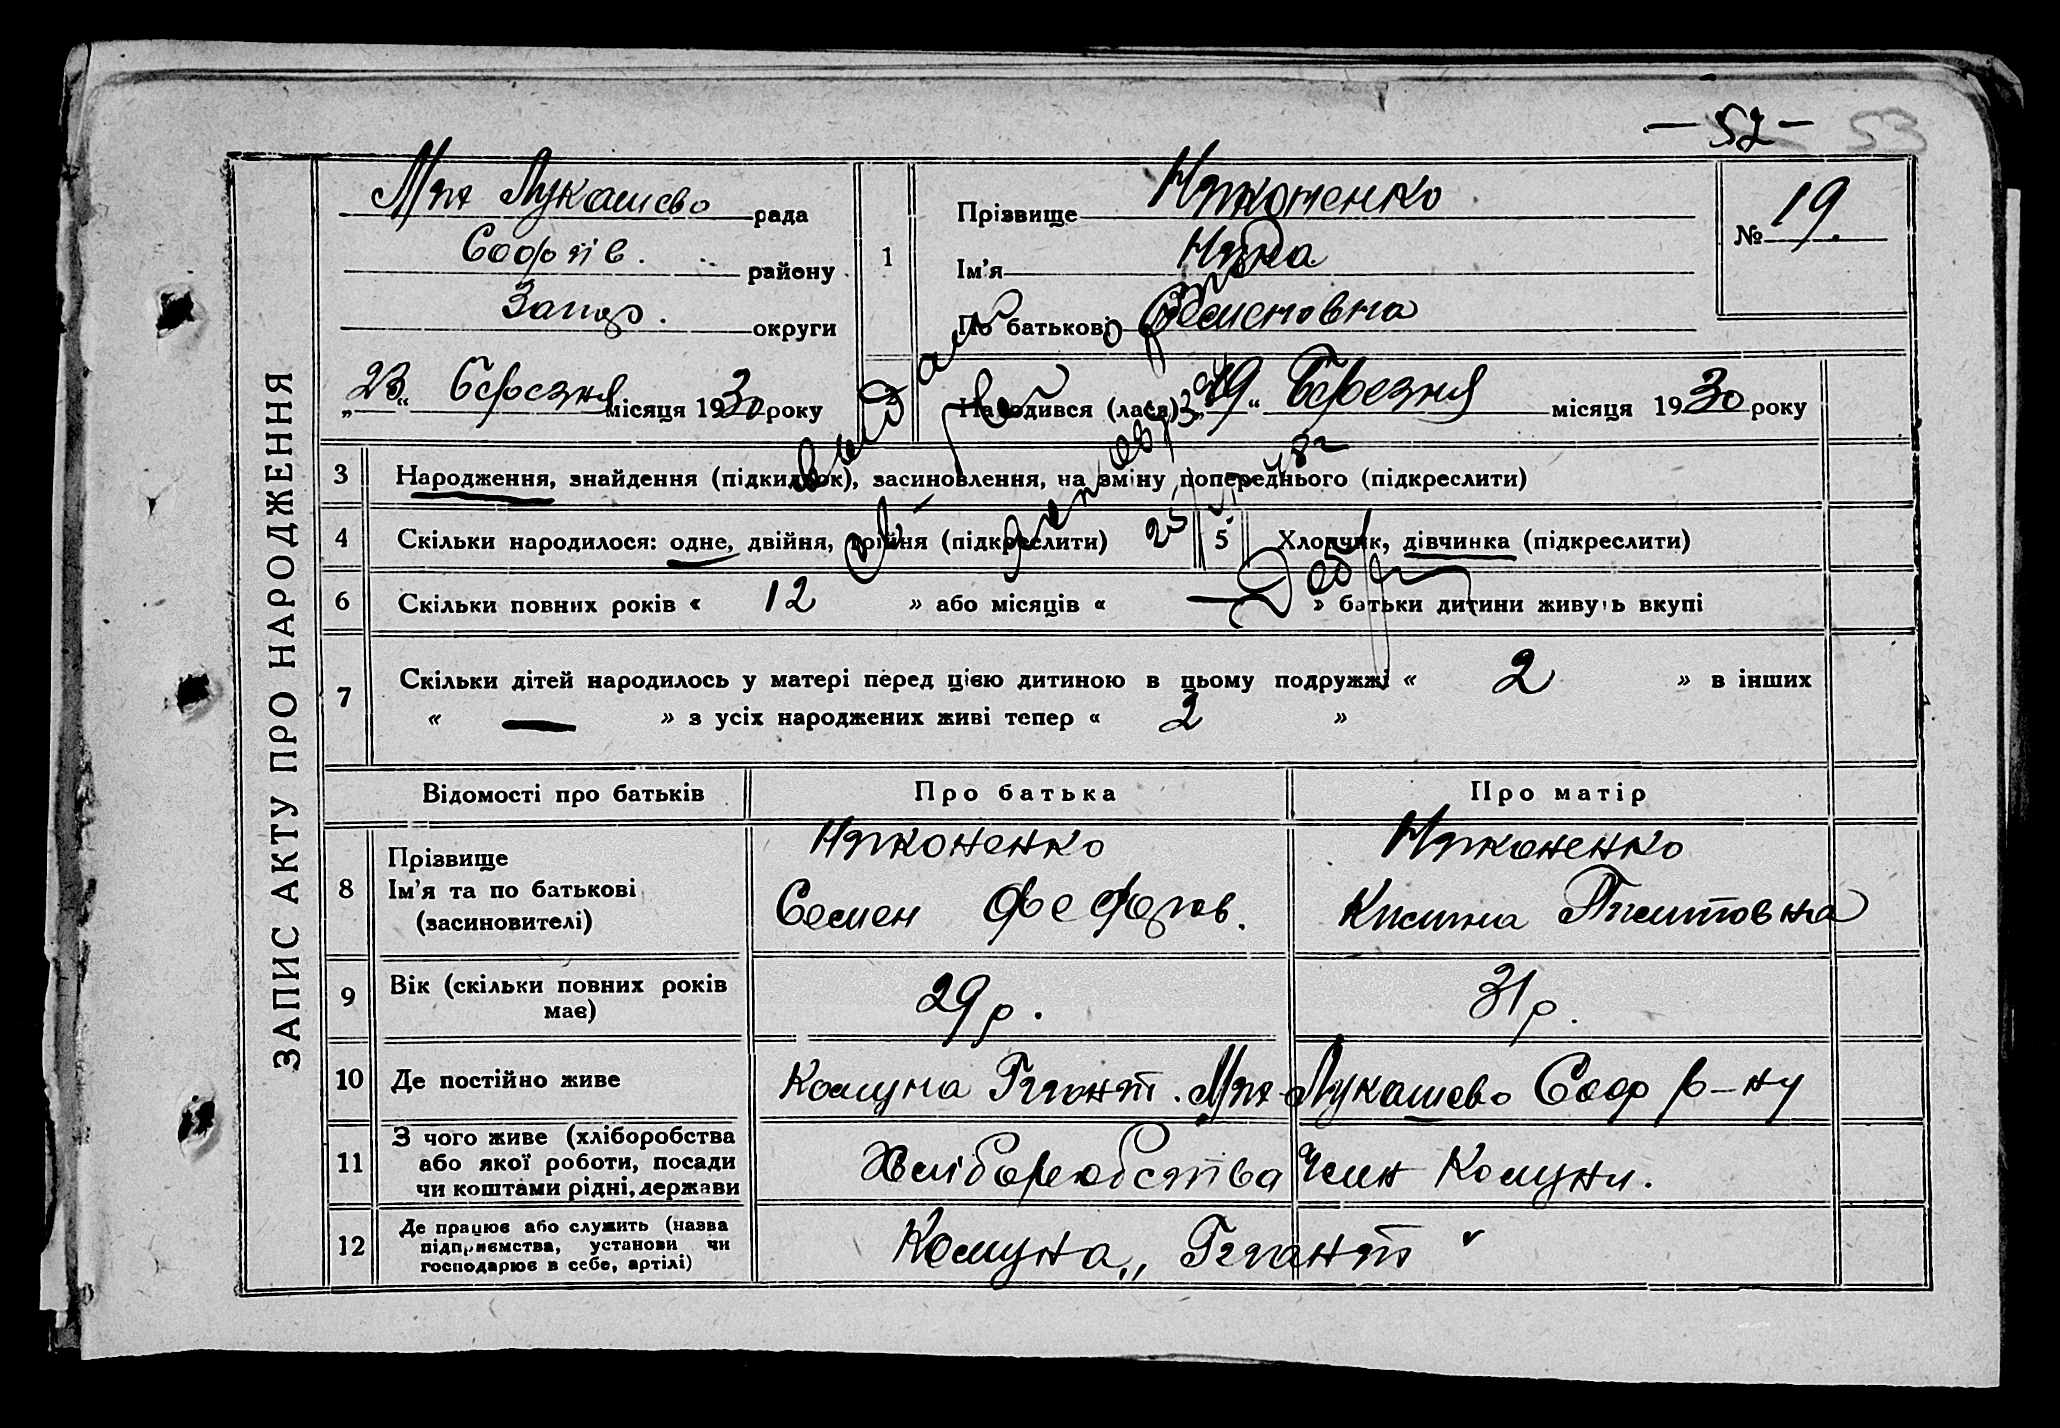 — 52 — 53
Мтт Лукашево рада
Софіїв. району
Запор. округи
1
Прізвище Никоненко
Ім'я Нина
По батькові Семеновна
№ 19.
„23“ Березня місяця 1930 року
2 Народився (лася) „19“ Березня місяця 1930 року
ЗАПИС АКТУ ПРО НАРОДЖЕННЯ
3 Народження, знайдення (підкидьок), засиновлення, на зміну попереднього (підкреслити)
4 Скільки народилося: одне, двійня, трійня (підкреслити) 5 Хлопчик, дівчинка (підкреслити)
6 Скільки повних років « 12 » або місяців « — » батьки дитини живуть вкупі
7 Скільки дітей народилось у матері перед цією дитиною в цьому подружжі « 2 » в інших
« — » з усіх народжених живі тепер « 2 »
Відомості про батьків Про батька Про матір
8 Прізвище
Ім'я та по батькові
(засиновителі)
Никоненко
Семен Федоров.
Никоненко
9 Вік (скільки повних років
має)
29 р.
31 р.
10 Де постійно живе Комуна Гігант. Лукашево Соф р-ну
11 З чого живе (хліборобства
або якої роботи, посади
чи коштами рідні, держави
Хліборобства Член Комуни.
12 Де працює або служить (назва
підприємства, установи чи
господарює в себе, артілі)
Комуна „Гігант"